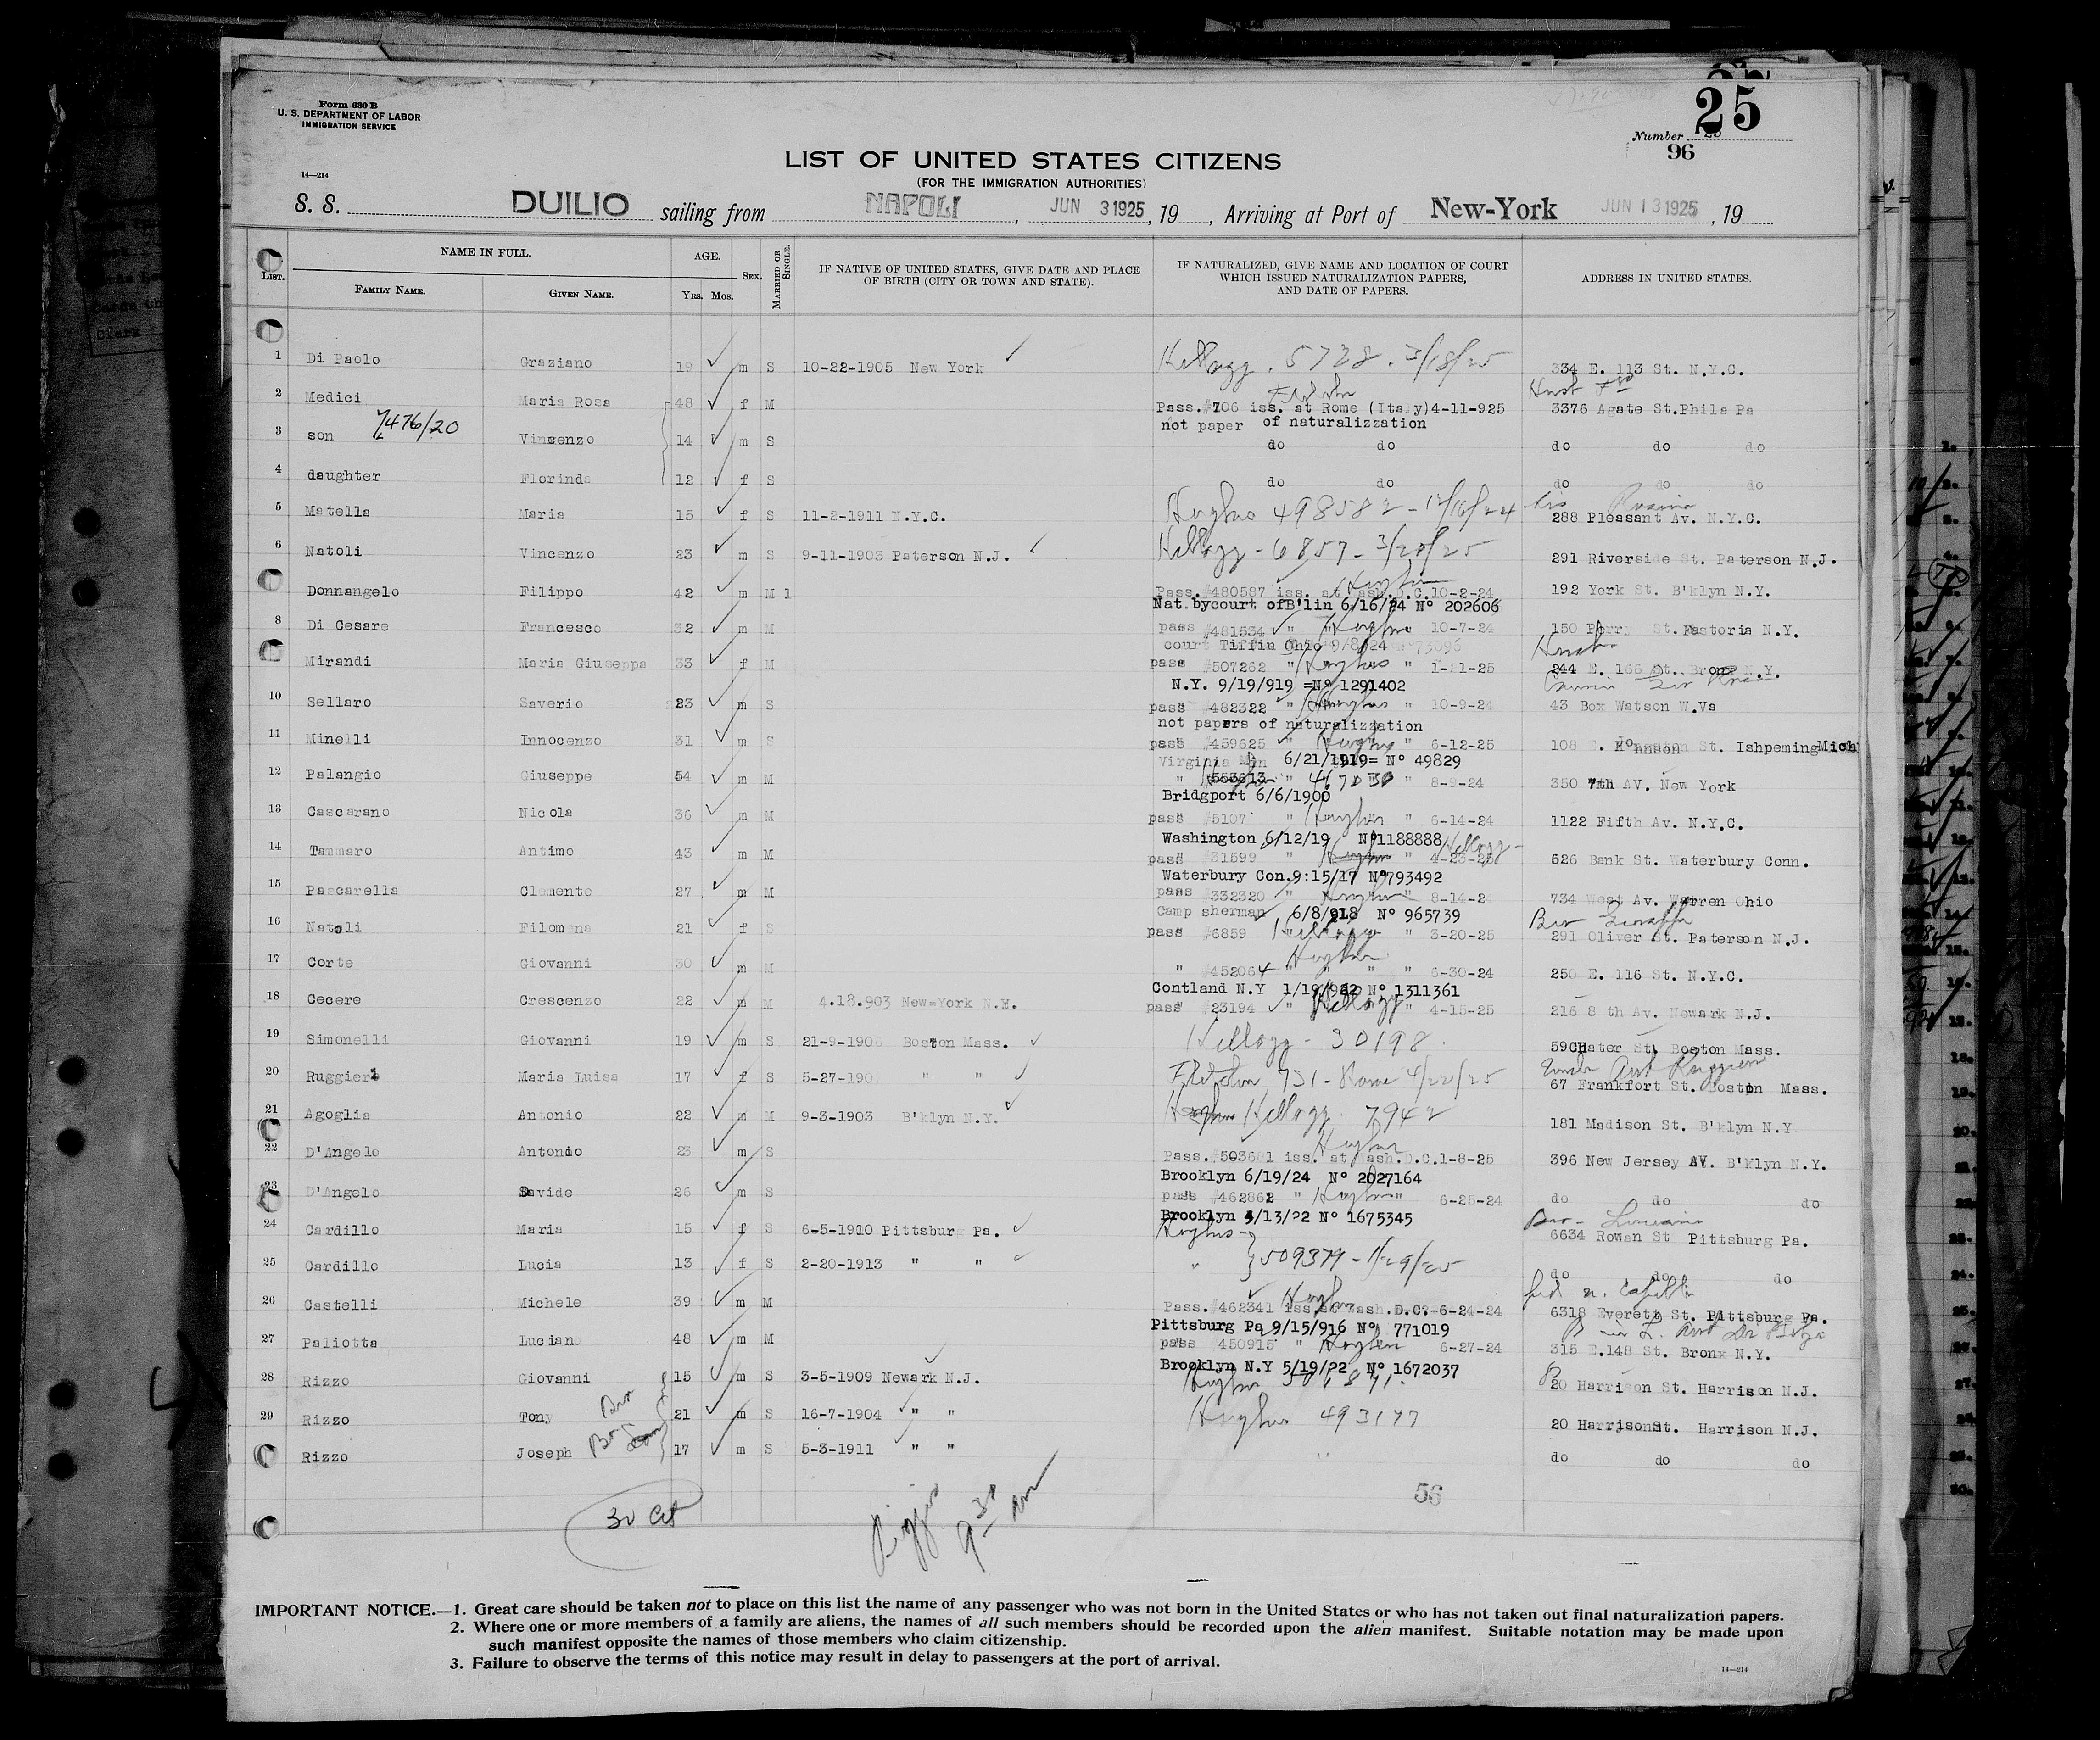 Form 630 B
U. S. DEPARTMENT OF LABOR
IMMIGRATION SERVICE
25
Number 25
96
LIST OF UNITED STATES CITIZENS
(FOR THE IMMIGRATION AUTHORITIES)
14—214
S. S. DUILIO sailing from NAPOLI, JUN 3 1925, 19 , Arriving at Port of New-York JUN 13 1925, 19
LIST. NAME IN FULL. FAMILY NAME. GIVEN NAME. AGE. YRS. MOS. SEX. MARRIED OR SINGLE. IF NATIVE OF UNITED STATES, GIVE DATE AND PLACE OF BIRTH (CITY OR TOWN AND STATE). IF NATURALIZED, GIVE NAME AND LOCATION OF COURT WHICH ISSUED NATURALIZATION PAPERS, AND DATE OF PAPERS. ADDRESS IN UNITED STATES.
1 Di Paolo Graziano 19 m S 10-22-1905 New York Kellogg . 5728 . 3/18/25 334 E. 113 St. N.Y.C.
2 Medici Maria Rosa 48 f M Pass.#706 iss. at Rome (Italy)4-11-925 3376 Agate St.Phila Pa
7476/20
not paper of naturalizzation
3 son Vincenzo 14 m S do do do do do
4 daughter Florinda 12 f S do do do do do
5 Matella Maria 15 f S 11-2-1911 N.Y.C. Hughes 498582 - 12/16/24 288 Pleasant Av. N.Y.C.
6 Natoli Vincenzo 23 m S 9-11-1903 Paterson N.J. Kellogg - 6857 - 3/20/25 291 Riverside St. Paterson N.J.
Donnangelo Filippo 42 m M 1 Pass.#480587 iss. at Wash.D.C.10-2-24 192 York St. B'klyn N.Y.
Nat.bycourt ofB'lin 6/16/24 Nº 202606
8 Di Cesare Francesco 32 m M pass #481534 " Hughes 10-7-24 150 Perry St.Fastoria N.Y.
court Tiffin Ohio 9/8/24 73096
Mirandi Maria Giuseppa 33 f M pass #507262 " Hughes " 1-21-25 244 E. 166 St. Bronx N.Y.
N.Y. 9/19/919 =Nº 1291402
10 Sellaro Saverio 23 m S pass #482322 " Hughes " 10-9-24 43 Box Watson W.Va
not papers of naturalizzation
11 Minelli Innocenzo 31 m S pass #459625 " Hughes " 6-12-25 108 E. Johnson St. Ishpeming Mich
Virginia Min 6/21/1919= Nº 49829
12 Palangio Giuseppe 54 m M " 467030 " 8-9-24 350 7th AV. New York
Bridgport 6/6/1900
13 Cascarano Nicola 36 m M pass #5107 " Hughes " 6-14-24 1122 Fifth Av. N.Y.C.
Washington 6/12/19 Nº1188888
14 Tammaro Antimo 43 m M pass #31599 " Kellogg " 4-23-25 526 Bank St. Waterbury Conn.
Waterbury Con.9:15/17 Nº793492
15 Pascarella Clemente 27 m M pass #332320 " Hughes " 8-14-2 734 West Av. Warren Ohio
Camp sherman 6/8/918 Nº 965739
16 Natoli Filomena 21 f S pass #6859 Kellogg " 3-20-25 291 Oliver St. Paterson N.J.
17 Corte Giovanni 30 m M " #452064 " Hughes " " 6-30-24 250 E. 116 St. N.Y.C.
Contland N.Y 1/19/922 Nº 1311361
18 Cecere Crescenzo 22 m M 4.18.903 New=York N.Y. pass #23194 " Kellogg " 4-15-25 216 8 th Av. Newark N.J.
19 Simonelli Giovanni 19 m S 21-9-190 Boston Mass. Kellogg - 30198 . 59 Chater St. Boston Mass.
20 Ruggieri Maria Luisa 17 f S 5-27-190 " " Fletcher 731 - Rome 4/22/25 67 Frankfort St. Boston Mass.
21 Agoglia Antonio 22 m M 9-3-1903 B'klyn N.Y. Kellogg 7942 181 Madison St. B'klyn N.Y
22 D'Angelo Antonio 23 m S Pass.#503681 iss. at Wash.D.C.1-8-25 396 New Jersey AV. B'klyn N.Y.
Brooklyn 6/19/24 Nº 2027164
23 D'Angelo Davide 26 m S pass #462862 " Hughes " 6-25-24 do do do
Brooklyn 4/13/22 Nº 1675345
24 Cardillo Maria 15 f S 6-5-1910 Pittsburg Pa. Hughes 6634 Rowan St Pittsburg Pa.
25 Cardillo Lucia 13 f S 2-20-1913 " " " 509379 - 1/29/25 do do do
26 Castelli Michele 39 m M Pass.#462341 iss.at Wash.D.C.-6-24-24 6318 Everett St. Pittsburg Pa.
Pittsburg Pa 9/15/916 Nº 771019
27 Paliotta Luciano 48 m M pass 450915 " Hughes 6-27-24 315 E.148 St. Bronx N.Y.
Brooklyn N.Y 5/19/22 Nº 1672037
28 Rizzo Giovanni 15 m S 3-5-1909 Newark N.J. Hughes 20 Harrison St. Harrison N.J.
29 Rizzo Tony Bro 21 m S 16-7-1904 " " Hughes 493177 20 Harrison St. Harrison N.J.
Rizzo Joseph Bro 17 m S 5-3-1911 " " do do do
56
30 Cit
9 30 am
IMPORTANT NOTICE.—1. Great care should be taken not to place on this list the name of any passenger who was not born in the United States or who has not taken out final naturalization papers.
2. Where one or more members of a family are aliens, the names of all such members should be recorded upon the alien manifest. Suitable notation may be made upon
such manifest opposite the names of those members who claim citizenship.
3. Failure to observe the terms of this notice may result in delay to passengers at the port of arrival.
14—214